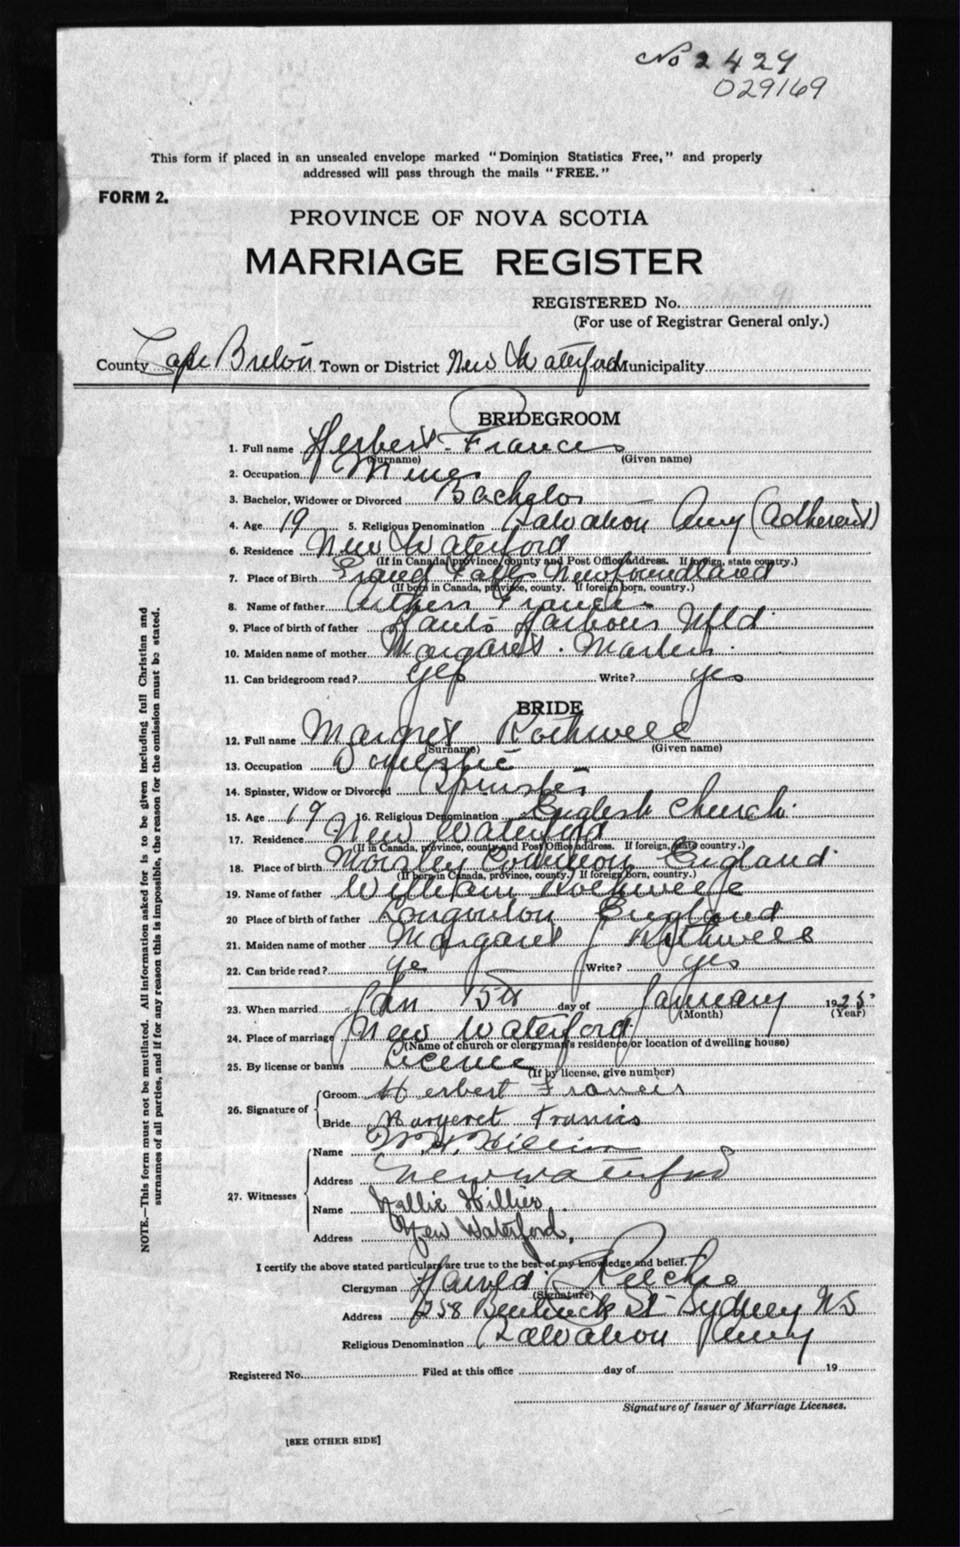 No 2429
029169
This form if placed in an unsealed envelope marked "Dominion Statistics Free," and properly
addressed will pass through the mails "FREE."
FORM 2.
PROVINCE OF NOVA SCOTIA
MARRIAGE REGISTER
REGISTERED No.
(For use of Registrar General only.)
County Cape Breton Town or District New Waterford Municipality
BRIDEGROOM
1. Full name Herbert Francis
(Surname) (Given name)
2. Occupation Miner
3. Bachelor, Widower or Divorced Bachelor
4. Age 19 5. Religious Denomination Salvation Army (Adherent)
6. Residence New Waterford
(If in Canada, province, county and Post Office address. If foreign, state country.)
7. Place of Birth Grand Falls Newfoundland
(If born in Canada, province, county. If foreign born, country.)
8. Name of father Francis
9. Place of birth of father Hants Harbour Nfld.
10. Maiden name of mother Margaret Martin.
11. Can bridegroom read? yes Write? yes
BRIDE
12. Full name Margret Rothwell
(Surname) (Given name)
13. Occupation Domestic
14. Spinster, Widow or Divorced Spinster
15. Age 19 16. Religious Denomination English Church.
17. Residence New Waterford
(If in Canada, province, county and Post Office address. If foreign, state country.)
18. Place of birth England.
(If born in Canada, province, county. If foreign born, country.)
19. Name of father William Rothwell
20 Place of birth of father England
21. Maiden name of mother Margaret Rothwell
22. Can bride read? ye Write? yes
23. When married Jan. 5th day of January 1925.
(Month) (Year)
24. Place of marriage New Waterford
(Name of church or clergyman's residence or location of dwelling house)
25. By license or banns Licence
(If by license, give number)
26. Signature of
Groom Herbert Francis
Bride Margeret Francis
27. Witnesses
Name W. H.
Address New Waterford
Name Hillier
Address New Waterford,
I certify the above stated particulars are true to the best of my knowledge and belief.
Clergyman Harold
(Signature)
Address 258 Bentinck St Sydney NS
Religious Denomination Salvation Army
Registered No. Filed at this office day of 19
Signature of Issuer of Marriage Licenses.
[SEE OTHER SIDE]
NOTE.—This form must not be mutilated. All information asked for is to be given including full Christian and
surnames of all parties, and if for any reason this is impossible, the reason for the omission must be stated.